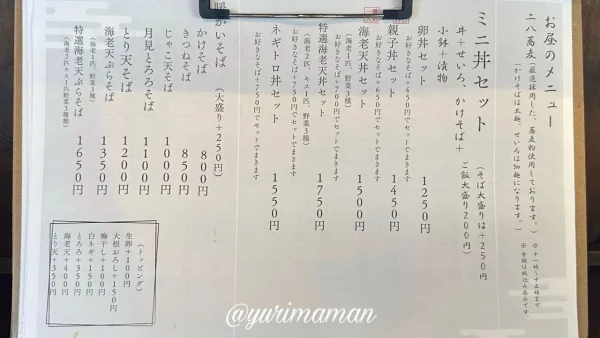 お昼のメニュー
二八蕎麦
(厳選採用した、蕎麦粉使用しております。)
(かけそばは太麺、せいろは細麺になります。)
※十一時～十五時まで
※金額は税込み表示です。
ミニ丼セット
(そば大盛りは＋250円
ご飯大盛り200円)
丼＋せいろ、かけそば＋
小鉢＋漬物
卵丼セット 1250円
お好きなそば＋450円でセットできます
親子丼セット 1450円
お好きなそば＋650円でセットできます
海老天丼セット 1500円
(海老1匹、野菜3種)
お好きなそば＋700円でセットできます
特選海老天丼セット 1750円
(海老2匹、キス1匹、野菜3種)
お好きなそば＋750円でセットできます
ネギトロ丼セット 1550円
お好きなそば＋750円でセットできます
暖かいそば (大盛り＋250円)
かけそば 800円
きつねそば 850円
じゃこ天そば 1000円
月見とろろそば 1100円
とり天そば 1200円
海老天ぷらそば 1350円
(海老1匹、野菜3種)
特選海老天ぷらそば 1650円
(海老2匹キス1匹野菜3種類)
(トッピング)
生卵＋100円
大根おろし＋150円
梅干し＋100円
白ネギ＋150円
とろろ＋350円
海老天＋400円
とり天＋350円
@yurimaman